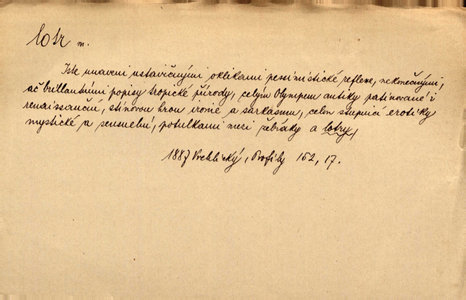 lotr m.
Jste unaveni ustavičnými oklikami pessimistické reflexe, nekonečnými,
ač brillantními popisy tropické přírody, celým Olympem antiky patinované i
renaissanční, stinovou hrou ironie a sarkasmu, celou stupnicí erotiky
mystické a sensuelní, potulkami mezi žebráky a lotry,
1887 Vrchlický, Profily 162, 17.